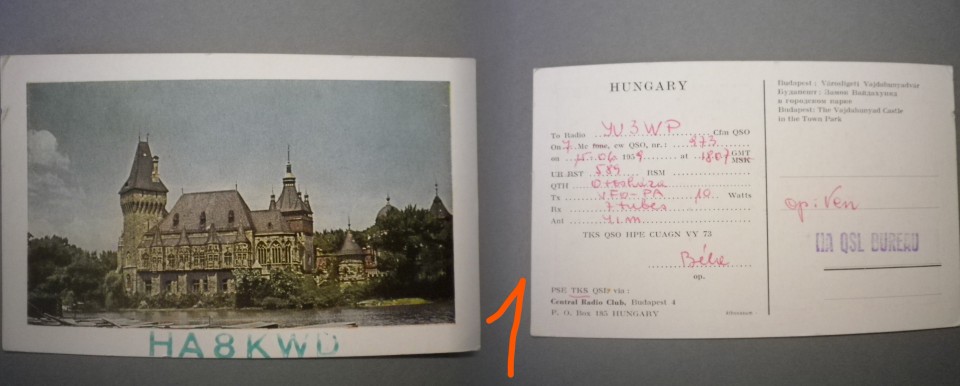 HA8KWD
1
HUNGARY
To Radio YU3WP Cfm QSO
On 7 Mc fone, cw QSO, nr.: 373
on 15.06 1959 at 1807 GMT
MSK
UR RST 589 RSM
QTH Orosháza
Tx VFO-PA 10 Watts
Rx 7 tubes
Ant 41 m
TKS QSO HPE CUAGN VY 73
Béla
op.
PSE TKS QSL via:
Central Radio Club, Budapest 4
P. O. Box 185 HUNGARY
Budapest: Városligeti Vajdahunyadvár
Будапешт: Замок Вайдахуняд
в городском парке
Budapest: The Vajdahunyad Castle
in the Town Park
op: Ven
HA QSL BUREAU